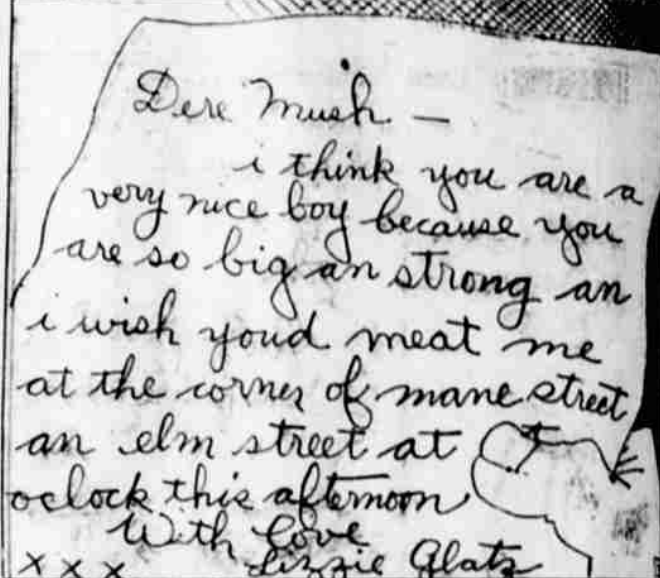 Dere Mush —
i think you are a
very nice boy because you
are so big an strong an
i wish youd meat me
at the corner of mane street
an elm street at
oclock this afternoon
With love
x x x Lizzie Glatz